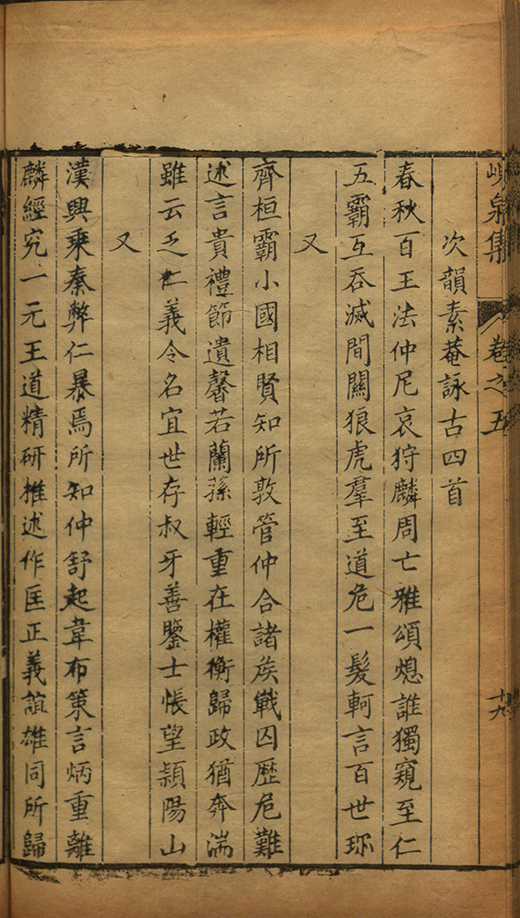 峴泉集 卷之五 十九
次韻素菴詠古四首
春秋百王法仲尼哀狩麟周亡雅頌熄誰獨窺至仁
五霸互吞滅間關狼虎羣至道危一髮軻言百世珎
又
齊桓霸小國相賢知所敦管仲合諸矦戰囚歷危難
述言貴禮節遺馨若蘭蓀輕重在權衡歸政猶奔湍
雖云乏仁義令名宜世存叔牙善鑒士悵望潁陽山
又
漢興乘秦弊仁暴焉所知仲舒起韋布策言炳重離
麟經究一元王道精研推述作匡正義誼雄同所歸